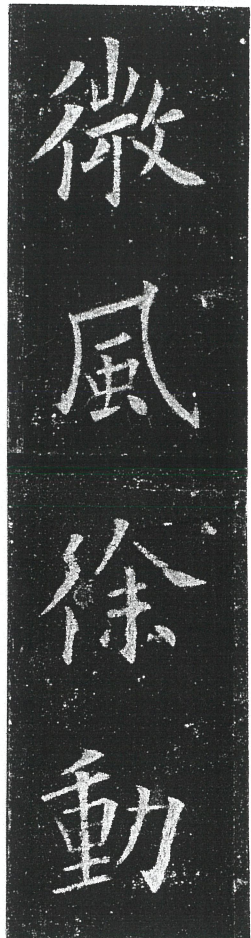 微風徐動